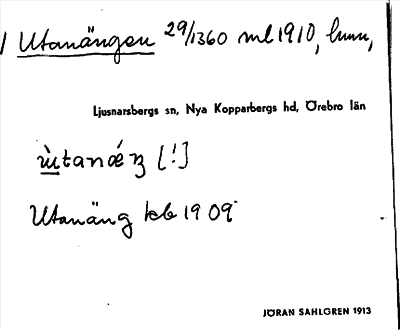 Utanängen 29/1360 ml 1910, hmn,
Ljusnarsbergs sn, Nya Kopparbergs hd, Örebro län
[!]
Utanäng kb 1909
JÖRAN SAHLGREN 1913